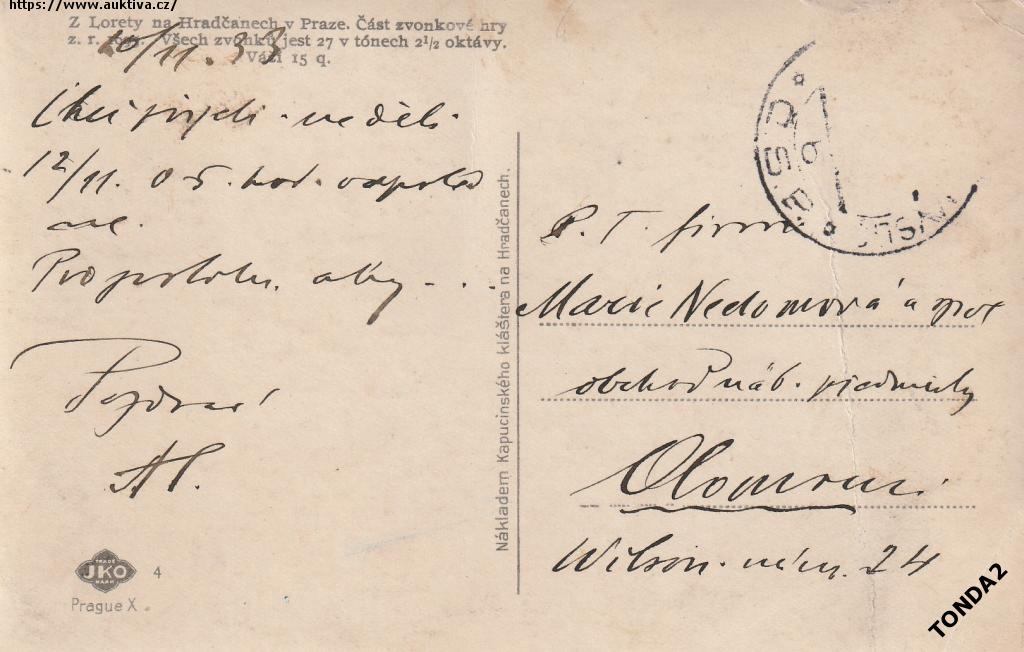 https://www.auktiva.cz/
Z Lorety na Hradčanech v Praze. Část zvonkové hry
z. r. Všech zvonků jest 27 v tónech 2½ oktávy.
Váží 15 q.
10/11. 33
Chci přijeti neděli
12/11. o 5. hod. odpoled
ne.
aby - ..
Pozdraví
Nákladem Kapucínského kláštera na Hradčanech.
P. T. firma
Marie Nedomová a spol
obchod náb. předměty
Olomouc.
Wilson. nám. 24
TRADE
JKO
MARK
4
Prague X
TONDA2